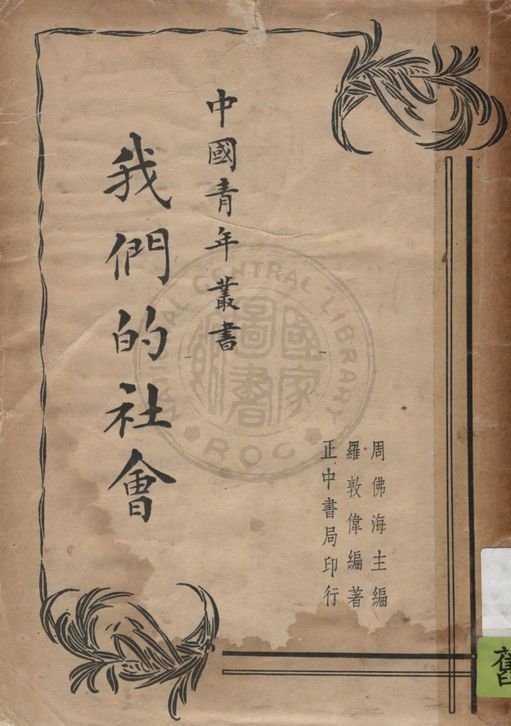 中國青年叢書
我們的社會
周佛海主編
羅敦偉編著
正中書局印行
NATIONAL CENTRAL LIBRARY
ROC
國家圖書館
舊